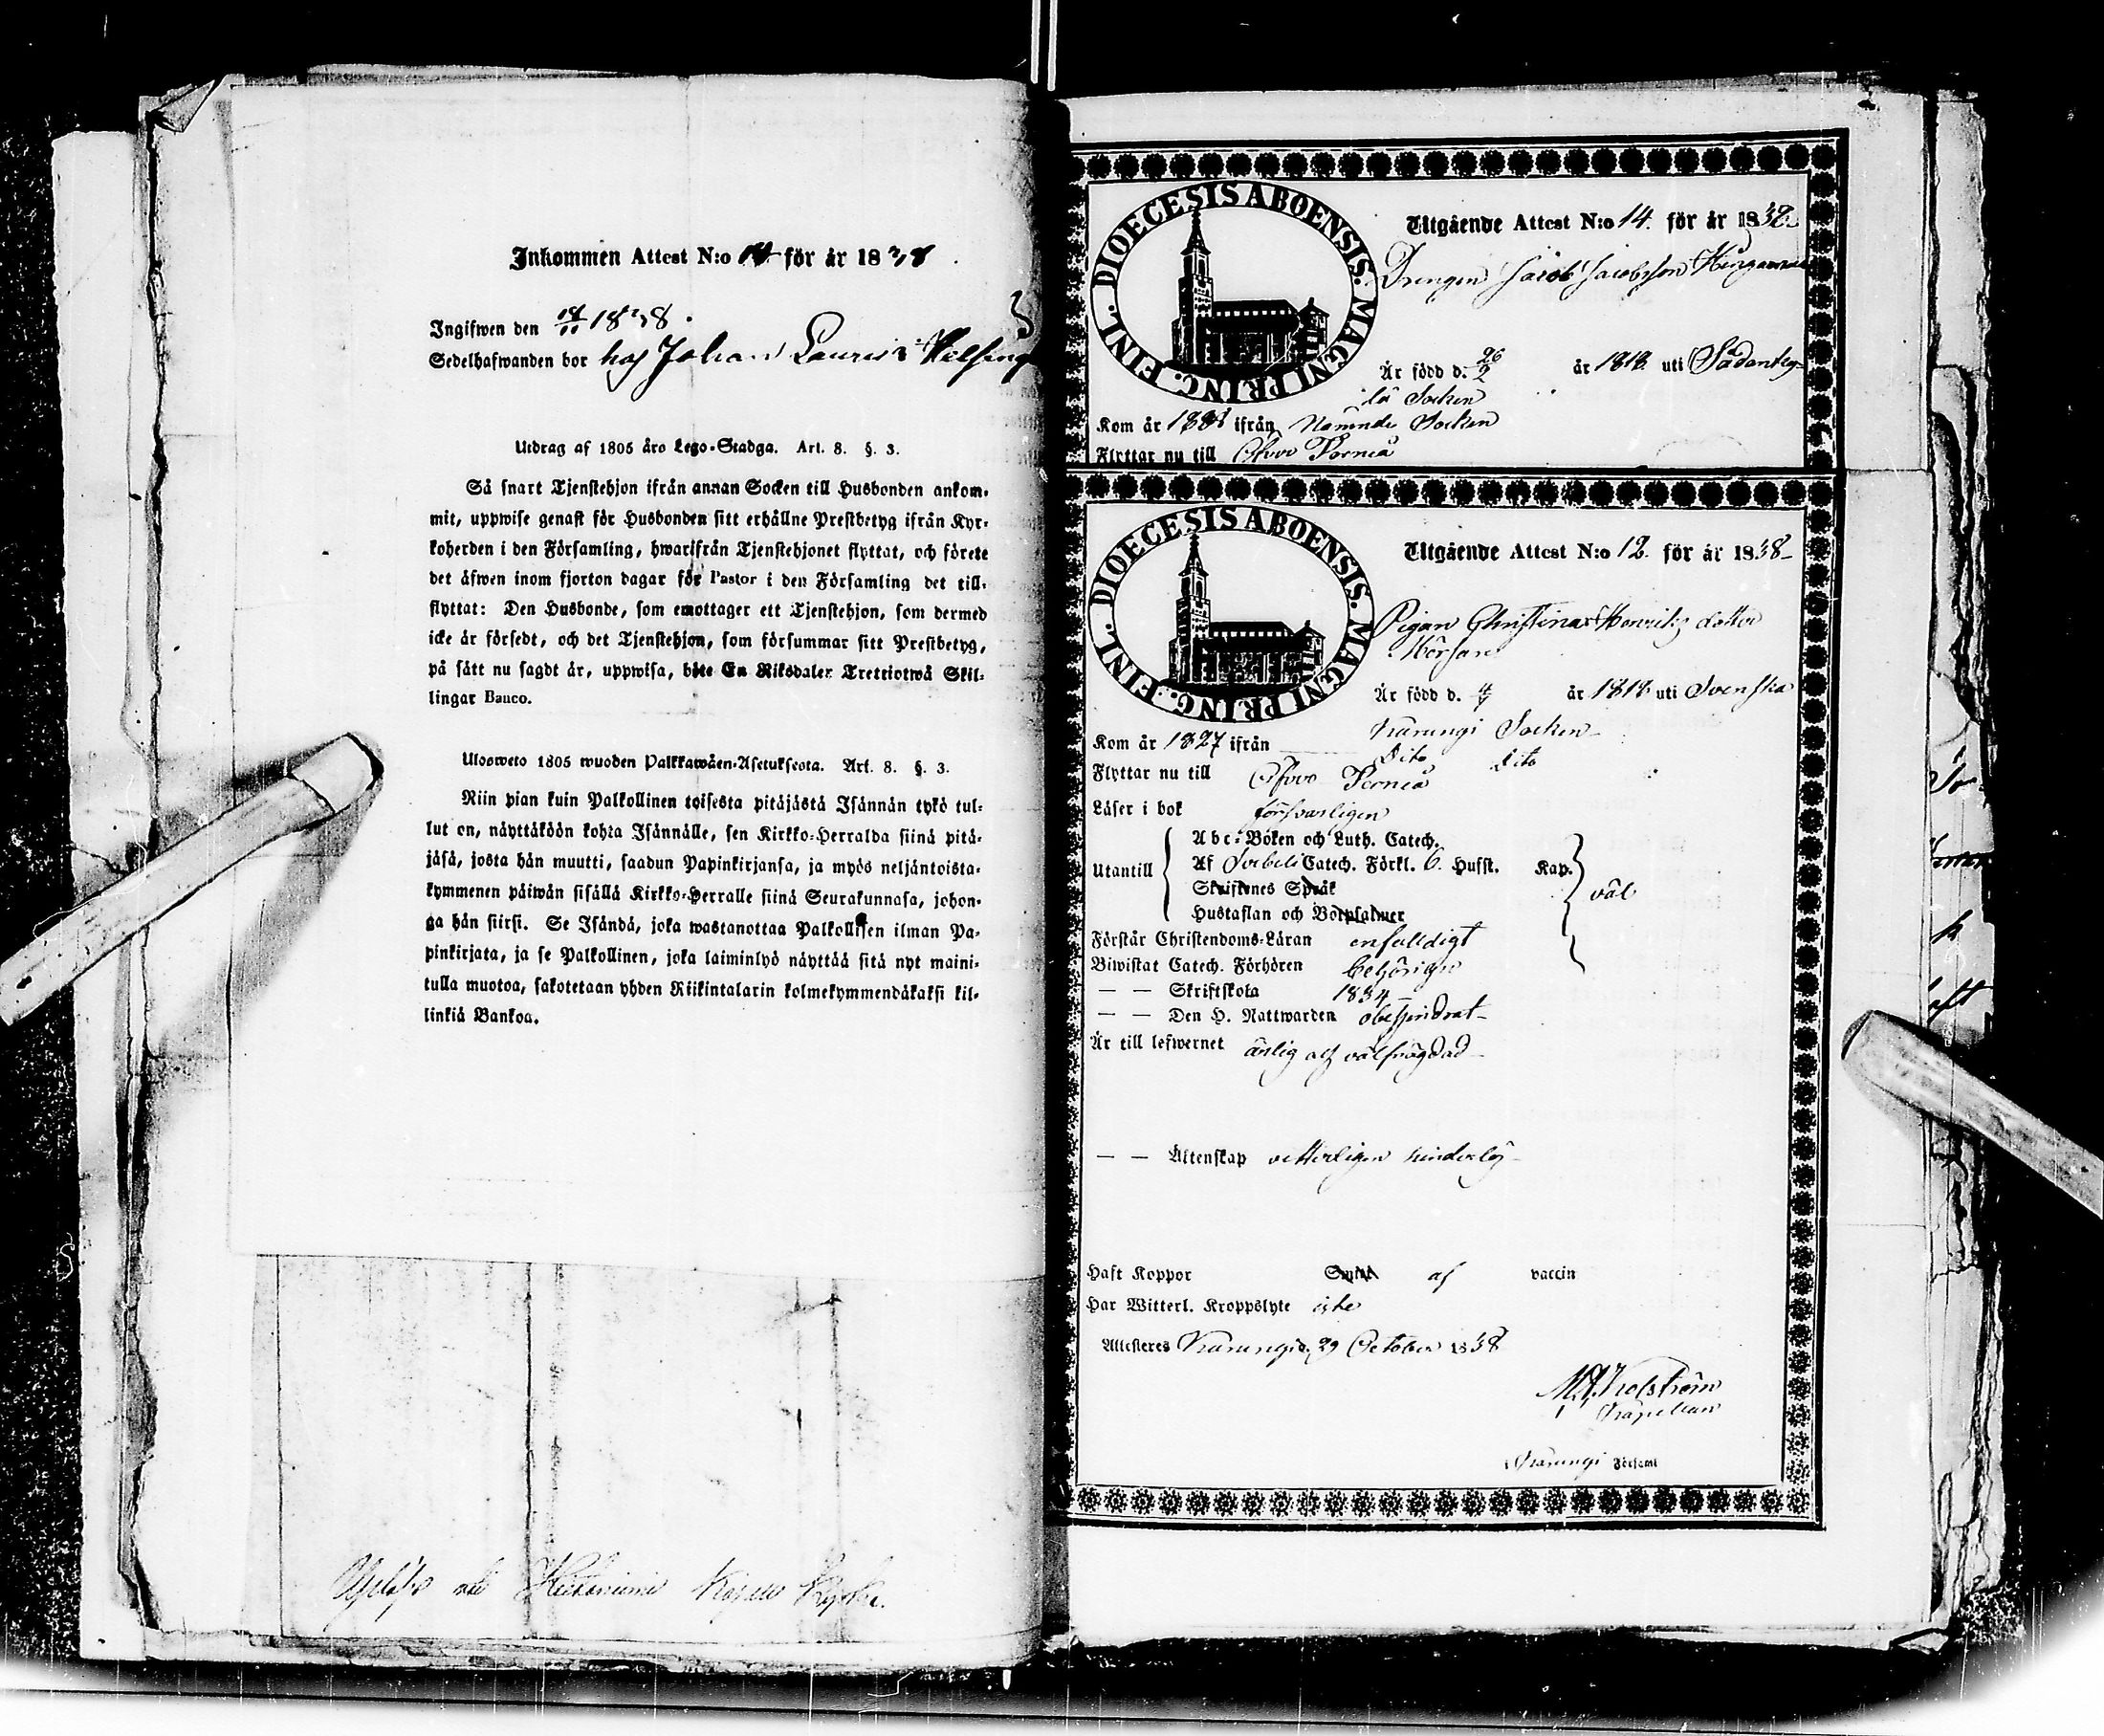 Inkommen Attest N:o 14 för år 1838
Ingifwen den 18/11 1838.
Sedelhafwanden bor hos Johan Lauri
Utdrag af 1805 års Lego-Stadga. Art. 8. §. 3.
Så snart Tjenstehjon ifrån annan Socken till Husbonden ankom-
mit, uppwise genast för Husbonden sitt erhållne Prestbetyg ifrån Kyr-
koherden i den Församling, hwarifrån Tjenstehjonet flyttat, och förete
det äfwen inom fjorton dagar för Pastor i den Församling det till-
flyttat: Den Husbonde, som emottager ett Tjenstehjon, som dermed
icke är försedt, och det Tjenstehjon, som försummar sitt Prestbetyg,
på sätt nu sagdt är, uppwisa, böte En Riksdaler Trettiotwå Skil-
lingar Banco.
Ulosweto 1805 wuoden Palkkawäen-Asetuksesta. Art. 8. §. 3.
Niin pian kuin Palkollinen toisesta pitäjästä Isännän tykö tul-
lut on, näyttäköön kohta Isännälle, sen Kirkko-Herralda siinä pitä-
jäsä, josta hän muutti, saadun Papinkirjansa, ja myös neljäntoista-
kymmenen päiwän sisällä Kirkko-Herralle siinä Seurakunnasa, johon-
ga hän siirsi. Se Isändä, joka wastanottaa Palkollisen ilman Pa-
pinkirjata, ja se Palkollinen, joka laiminlyö näyttää sitä nyt maini-
tulla muotoa, sakotetaan yhden Riikintalarin kolmekymmendäkaksi kil-
linkiä Bankoa.
DIOECESIS ABOENSIS. MAGNI PRINC. FINL.
Utgående Attest N:o 14. för år 1838
Drengen Jacob Jacobsson
Är född d. 26/2 år 1818 uti
Socken
Kom år 1831 ifrån Nämnde Socken
Flyttar nu till Öfver Torneå
DIOECESIS ABOENSIS. MAGNI PRINC. FINL.
Utgående Attest N:o 12. för år 1838
Pigan Christina Henriks dotter
Är född d. år 1818 uti Svenska
Karungi Socken
Kom år 1827 ifrån Dito Dito
Flyttar nu till Öfver Torneå
Läser i bok försvarligen
Utantill
Abc-Boken och Luth. Catech.
Af Svebelii Catech. Förkl. 6. Hufst. Kap.
Skriftenes Språk
Hustaflan och Botpsalmer
väl
Förstår Christendoms-Läran enfaldigt
Biwistat Catech. Förhören behörigen
— — Skriftskola 1834
— — Den H. Nattwarden obehindrat
Är till lefwernet ärlig och välfrägdad
— — Äktenskap vetterligen hinderlös
Haft Koppor af vaccin
Har Witterl. Kroppslyte icke
Attesteres Karungi d. 29 October 1838
Capellan
Karungi Församl